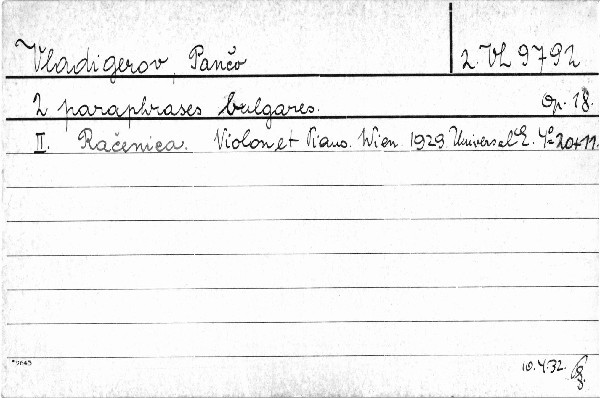 Vladigerov, Pančo 2. VL 9792
2 paraphrases bulgares. Op. 18.
II. Račenica. Violon et Piano. Wien 1929 Universal E. 4° 20+11.
10.4.32.